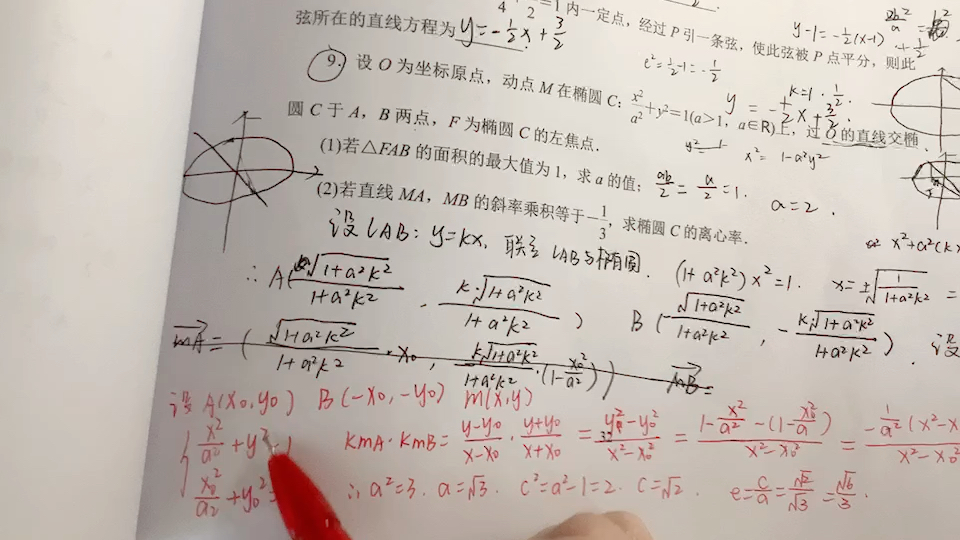 4 2 =1内一定点，经过P引一条弦，使此弦被P点平分，则此
弦所在的直线方程为 y=-1/2x+3/2
y-1=-1/2(x-1)
+1/2
e²=1/2-1=-1/2
9. 设O为坐标原点，动点M在椭圆C：x²/a²+y²=1(a>1，a∈R)上，过O的直线交椭
k=1·1/2.
y=-1/2x+3/2
圆C于A，B两点，F为椭圆C的左焦点.
y²=1
x²=1-a²y²
(1)若△FAB的面积的最大值为1，求a的值；
ab/2=a/2=1.
a=2.
(2)若直线MA，MB的斜率乘积等于-1/3，求椭圆C的离心率.
设lAB: y=kx, 联立lAB与椭圆. (1+a²k²)x²=1. x=±√(1/(1+a²k²)) =
x²+a²(k
∴A(√(1+a²k²)/(1+a²k²), k·√(1+a²k²)/(1+a²k²)) B(-√(1+a²k²)/(1+a²k²), -k√(1+a²k²)/(1+a²k²)). 设
MA=(√(1+a²k²)/(1+a²k²)·x₀, k√(1+a²k²)/(1+a²k²)·(1-x₀²/a²)) MB=
设A(x₀,y₀) B(-x₀,-y₀) m(x,y)
x²/a²+y²=1 kmA·kmB=(y-y₀)/(x-x₀)·(y+y₀)/(x+x₀)=(y²-y₀²)/(x²-x₀²)=(1-x²/a²-(1-x₀²/a²))/(x²-x₀²)=-1/a²(x²-x
x²-x₀
x₀²/a²+y₀²= ∴a²=3. a=√3. c²=a²-1=2. c=√2. e=c/a=√2/√3=√6/3.